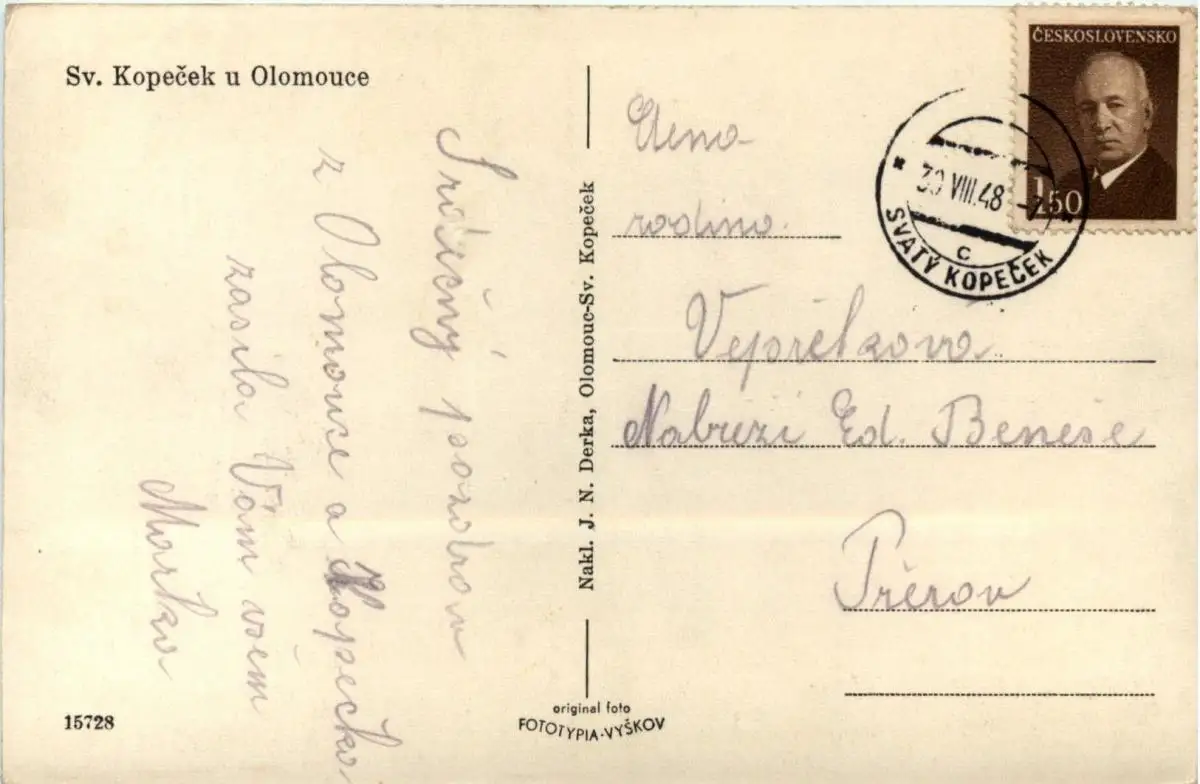 Sv. Kopeček u Olomouce
Srdečný pozdrav
z Olomouce a Kopečka
zasílá Vám všem
Marka
Nakl. J. N. Derka, Olomouc-Sv. Kopeček
ČESKOSLOVENSKO
1.50
30 VIII.48 -7
C
SVATÝ KOPEČEK
Ctěná
rodina
Nábřeží Ed. Beneše
Přerov
15728
original foto
FOTOTYPIA-VYŠKOV